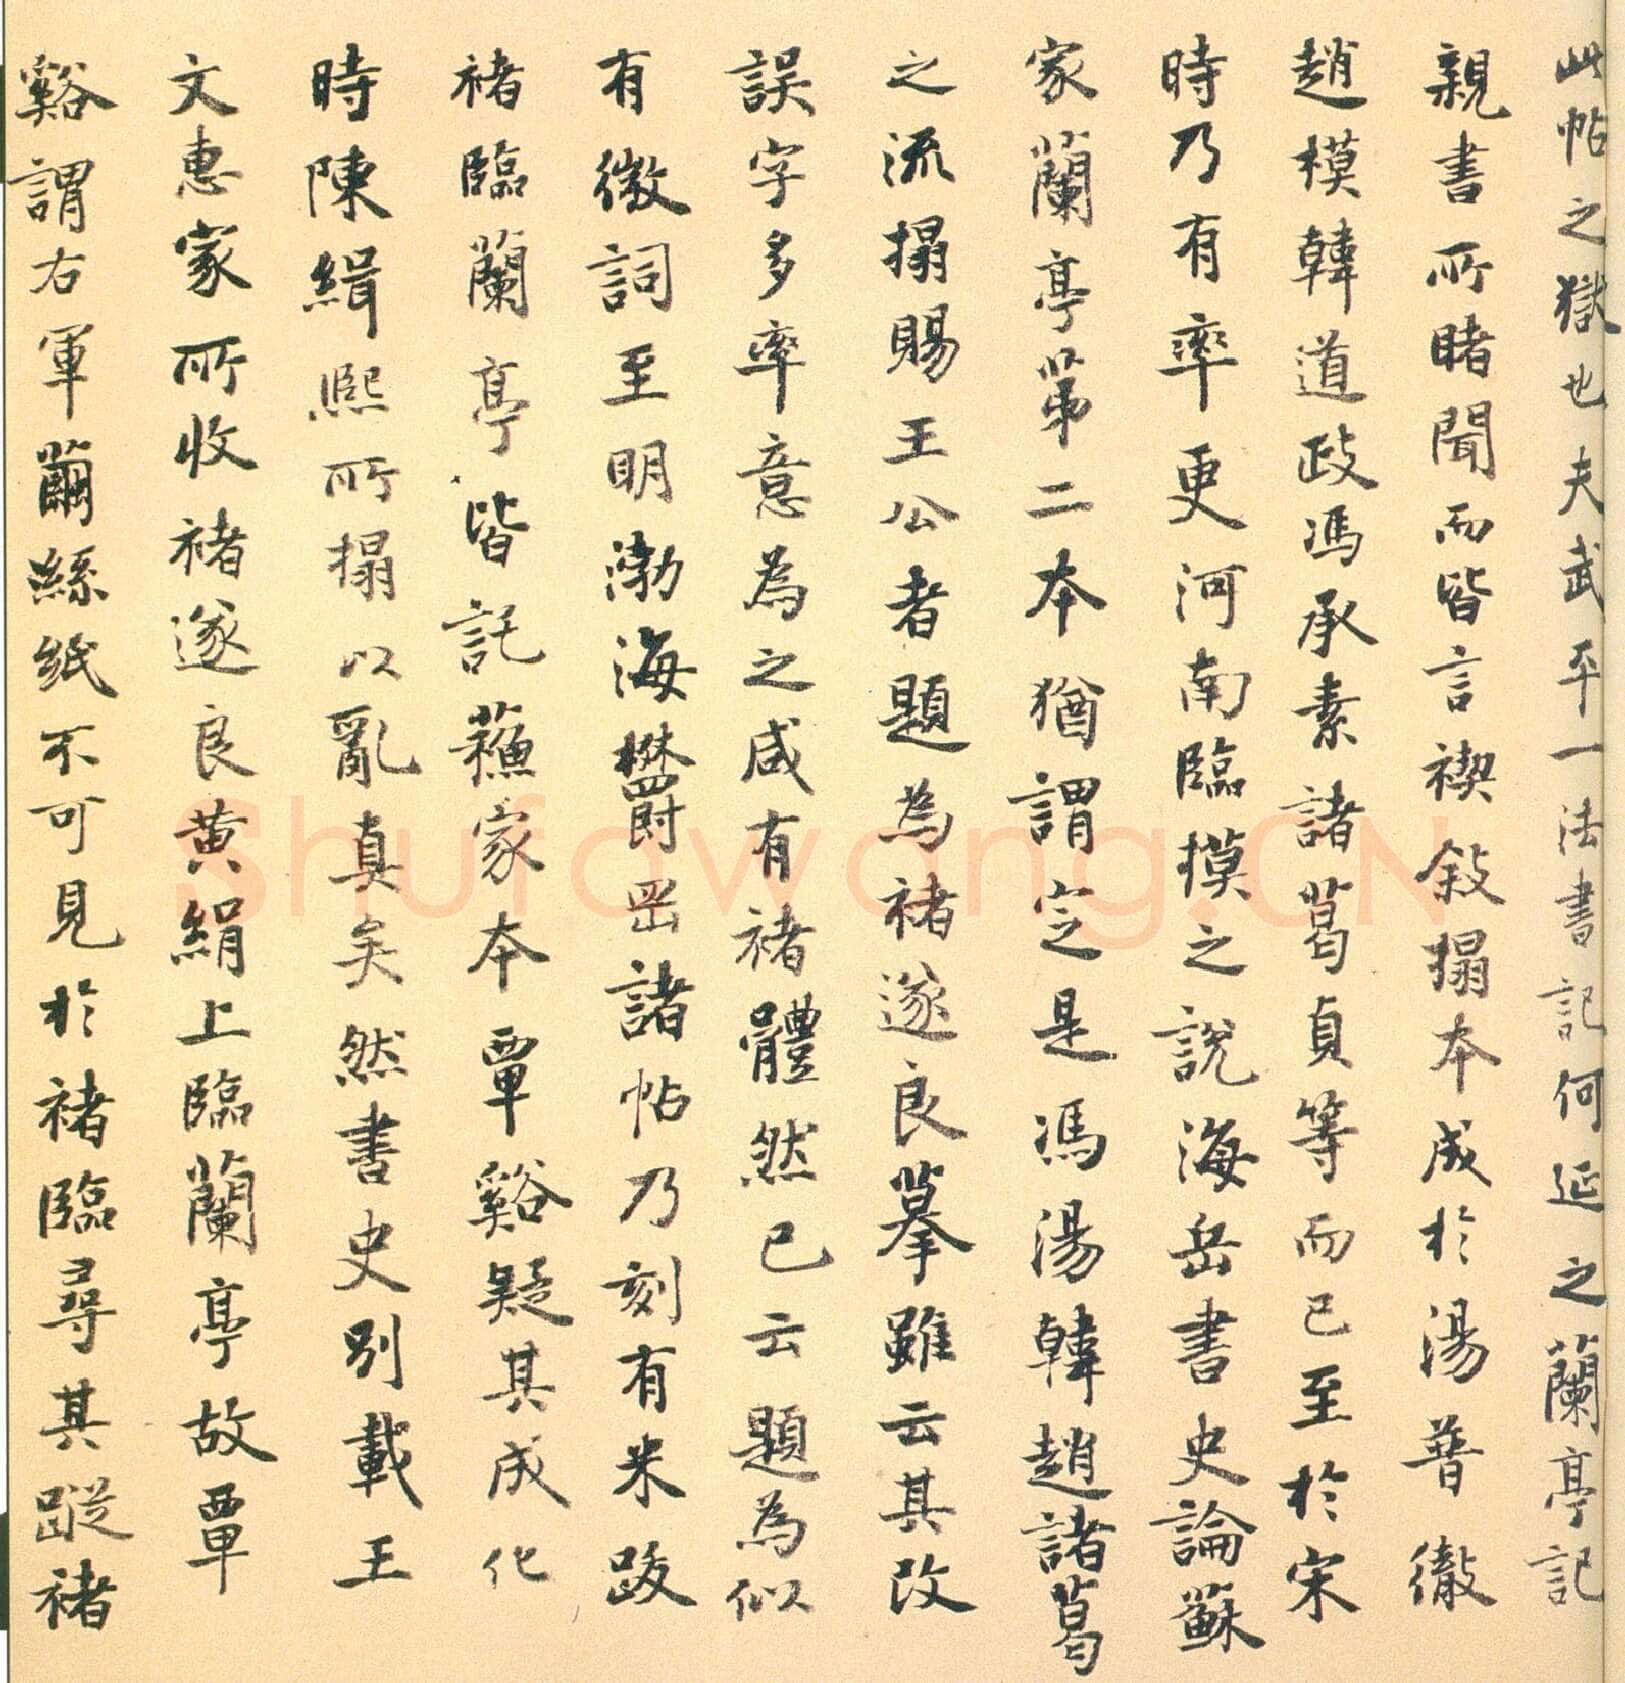 此帖之獄也夫武平一法書記何延之蘭亭記
親書所睹聞而皆言禊敘搨本成於湯普徹
趙模韓道政馮承素諸葛貞等而已至於宋
時乃有率更河南臨摸之說海岳書史論蘇
家蘭亭第二本猶謂定是馮湯韓趙諸葛
之流搨賜王公者題為褚遂良摹雖云其改
誤字多率意為之咸有褚體然已云題為似
有微詞至明渤海鬱岡諸帖乃刻有米跋
褚臨蘭亭皆託蘓家本覃谿疑其成化
時陳緝熙所搨以亂真矣然書史別載王
文惠家所收褚遂良黃絹上臨蘭亭故覃
谿謂右軍繭絲紙不可見於褚臨尋其蹤褚
Shufawang.CN